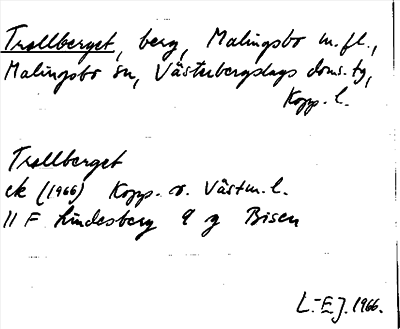 Trollberget, berg, Malingsbo m.fl.,
Malingsbo sn, Västerbergslags doms.tg,
Kopp. l.
Trollberget
ek (1966) Kopp. o. Västm. l.
11 F Lindesberg 9 g Bisen
L.-E.J. 1966.